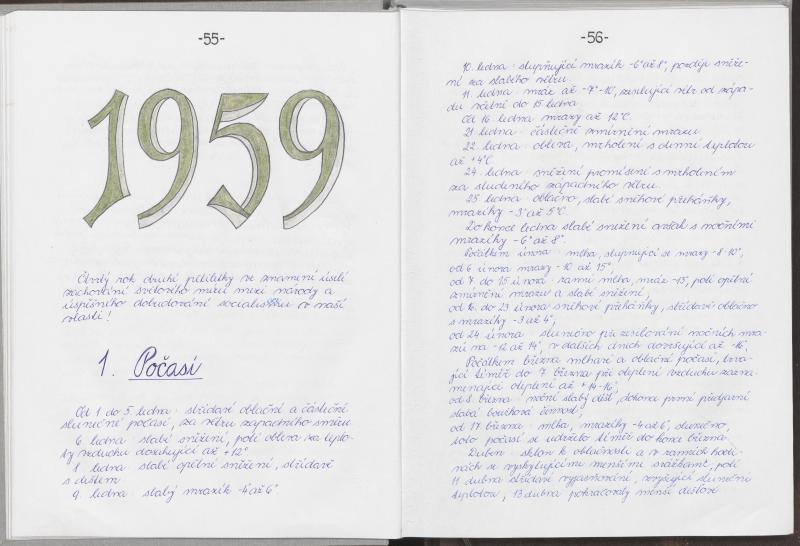 -55-
1959
Čtvrtý rok druhé pětiletky ve znamení úsilí
zachování světového míru mezi národy a
úspěšného dobudování socialismu v naší
vlasti!
1. Počasí
Od 1 do 5 ledna: střídavě oblačné a částečně
slunečné počasí, za větru západního směru.
6 ledna: slabé snížení, poté obleva za teplo-
ty vzduchu dosahující až +12°
8 ledna: slabé opětné sněžení, střídavě
s deštěm.
9. ledna: slabý mrazík -4° až 6°
-56-
10. ledna: stupňující mrazík -6° až 8°, později sněže-
ní za slabého větru.
11. ledna: mráz až -7° -10°, zesilující větr od západu
du včetně do 15 ledna
Od 16 ledna mrazy až 12°C.
21 ledna: částečné zmírnění mrazu.
22. ledna: obleva, mrholení s denní teplotou
až +4°C.
24. ledna: snížení promísené s mrholením
za studeného západního větru.
25 ledna: oblačno, slabé sněhové přeháňky,
mrazíky -3° až 5°C.
Do konce ledna slabé snežení avšak s nočními
mrazíky -6° až 8°.
Počátkem února: mlha, stupňující se mrazy -8 -10°,
od 6 února mrazy -10 až 15°,
od 7. do 15 února: ranní mlha, mráz -15°, poté opětné
zmírnění mrazu a slabé snížení,
od 16. do 23 února sněhové přeháňky, střídavě oblačno
s mrazíky -3 až 4°,
od 24 února: slunečno při zesilování nočních mra-
zů na -12 až 14°, v dalších dnech dovršující až -16°,
Počátkem března mlhavé a oblačné počasí, trva-
jící téměř do 7 března při oteplení vzduchu zazna-
menající oteplení až +14-16°,
od 8 března: noční slabý déšť, dokonce první předjarní
slabá bouřková činnost,
od 17 března: mlha, mrazíky -4 až 6°, slunečno,
toto počasí se udrželo téměř do konce března
Duben: sklon k oblačnosti a v ranních hodi-
nách se vyskytujícími menšími srážkami, poté
11 dubna střídavé vyjasňování, zvyšující sluneční
teplotou, 13 dubna pokračovaly menší dešťové